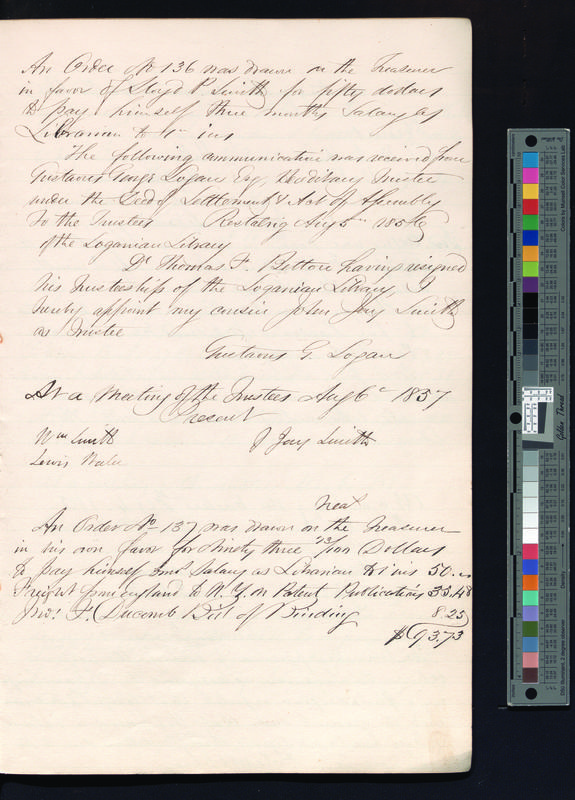 An Order No 136 was drawn on the Treasurer
in favor of Lloyd P. Smith for fifty dollars
to pay himself three months Salary as
Librarian to 1st ins
The following communication was received from
Gustavus George Logan Esq, Hereditary Trustee
under the Deed of Settlement & Act of Assembly
To the Trustees Restalrig Aug 5th 1856
of the Loganian Library
Dr Thomas F. Betton having resigned
his trusteeship of the Loganian Library, I
hereby appoint my cousin John Jay Smith
as Trustee
Gustavus G. Logan
At a Meeting of the Trustees Aug 6th 1857
Present
Wm Smith J Jay Smith
Lewis
An Order No 137 was drawn on the Treasurer
in his own favor for Ninety three 73/100 Dollars
to pay himself 3 mos Salary as Librarian to 1 ins 50.
Freight from England to N.Y. on Patent Publications 35.48
F. Ducomb Bill of Binding 8.25
$93.73